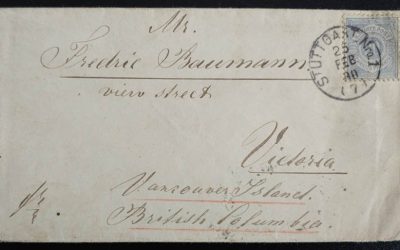 Mr.
Fredric Baumann
view street
Victoria
Vancouver Island.
British Columbia.
STUTTGART Nro. 1
25
FEB
80
(7)